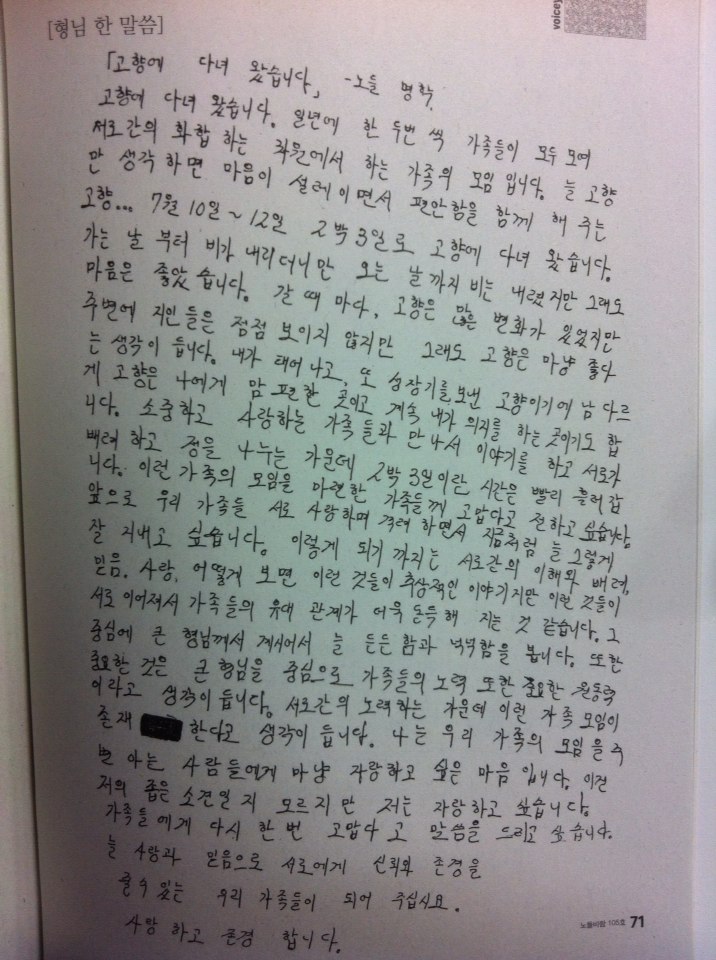 [형님 한 말씀]
voicey
「고향에 다녀 왔습니다.」 -노들 명학.
고향에 다녀 왔습니다. 일년에 한 두번 씩 가족들이 모두 모여
서로간의 화합 하는 차원에서 하는 가족의 모임 입니다. 늘 고향
만 생각 하면 마음이 설레이면서 편안함을 함께 해 주는
고향... 7월 10일 ~ 12일 2박 3일로 고향에 다녀 왔습니다.
가는 날 부터 비가 내리더니만 오는 날까지 비는 내렸지만 그래도
마음은 좋았습니다. 갈 때 마다, 고향은 많은 변화가 있었지만
주변에 지인들은 점점 보이지 않지만 그래도 고향은 마냥 좋다
는 생각이 듭니다. 내가 태어나고, 또 성장기를 보낸 고향이기에 남 다르
게 고향은 나에게 맘 편한 곳이고 계속 내가 의지를 하는 곳이기도 합
니다. 소중하고 사랑하는 가족들과 만나서 이야기를 하고 서로가
배려 하고 정을 나누는 가운데 2박 3일이란 시간은 빨리 흘러갑
니다. 이런 가족의 모임을 마련한 가족들께 고맙다고 전하고 싶습니다.
앞으로 우리 가족들 서로 사랑하며 격려 하면서 지금처럼 늘 그렇게
잘 지내고 싶습니다. 이렇게 되기 까지는 서로간의 이해와 배려,
믿음. 사랑, 어떻게 보면 이런 것들이 추상적인 이야기지만 이런 것들이
서로 이어져서 가족들의 유대 관계가 더욱 돈독해 지는 것 같습니다. 그
중심에 큰 형님께서 계시어서 늘 든든함과 넉넉함을 봅니다. 또한
중요한 것은 큰 형님을 중심으로 가족들의 노력 또한 중요한 원동력
이라고 생각이 듭니다. 서로간의 노력하는 가운데 이런 가족 모임이
존재 한다고 생각이 듭니다. 나는 우리 가족의 모임을 주
변 아는 사람들에게 마냥 자랑하고 싶은 마음 입니다. 이건
저의 좁은 소견일 지 모르지만 저는 자랑하고 싶습니다.
가족들에게 다시 한번 고맙다고 말씀을 드리고 싶습니다.
늘 사랑과 믿음으로 서로에게 신뢰와 존경을
줄 수 있는 우리 가족들이 되어 주십시요.
사랑 하고 존경 합니다.
노들바람 105호 71